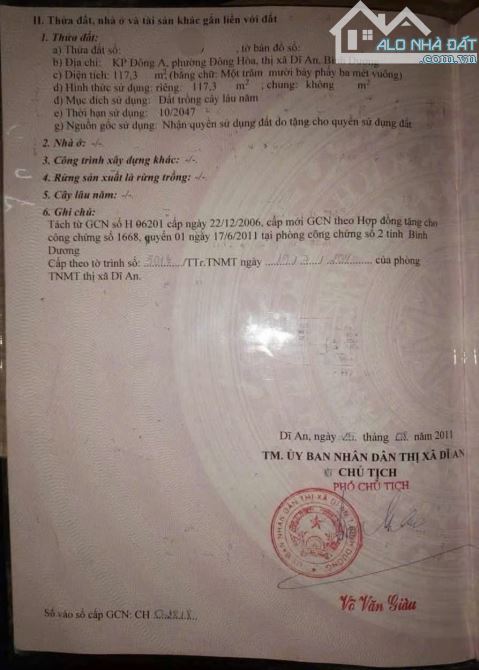 ALO NHÀ ĐẤT
.com.vn
II. Thửa đất, nhà ở và tài sản khác gắn liền với đất
1. Thửa đất:
a) Thửa đất số: , tờ bản đồ số:
b) Địa chỉ: KP Đông A, phường Đông Hòa, thị xã Dĩ An, Bình Dương
c) Diện tích: 117,3 m² (bằng chữ: Một trăm mười bảy phẩy ba mét vuông)
d) Hình thức sử dụng: riêng: 117,3 m², chung: không m²
đ) Mục đích sử dụng: Đất trồng cây lâu năm
e) Thời hạn sử dụng: 10/2047
g) Nguồn gốc sử dụng: Nhận quyền sử dụng đất do tặng cho quyền sử dụng đất
2. Nhà ở: -/-
3. Công trình xây dựng khác: -/-
4. Rừng sản xuất là rừng trồng: -/-
5. Cây lâu năm: -/-
6. Ghi chú:
Tách từ GCN số H 06201 cấp ngày 22/12/2006, cấp mới GCN theo Hợp đồng tặng cho
công chứng số 1668, quyển 01 ngày 17/6/2011 tại phòng công chứng số 2 tỉnh Bình
Dương
Cấp theo tờ trình số: /TTr.TNMT ngày của phòng
TNMT thị xã Dĩ An.
Dĩ An, ngày tháng năm 2011
TM. ỦY BAN NHÂN DÂN THỊ XÃ DĨ AN
CHỦ TỊCH
PHÓ CHỦ TỊCH
ỦY BAN NHÂN DÂN THỊ XÃ DĨ AN T. BÌNH DƯƠNG
Võ Văn Giàu
Số vào sổ cấp GCN: CH